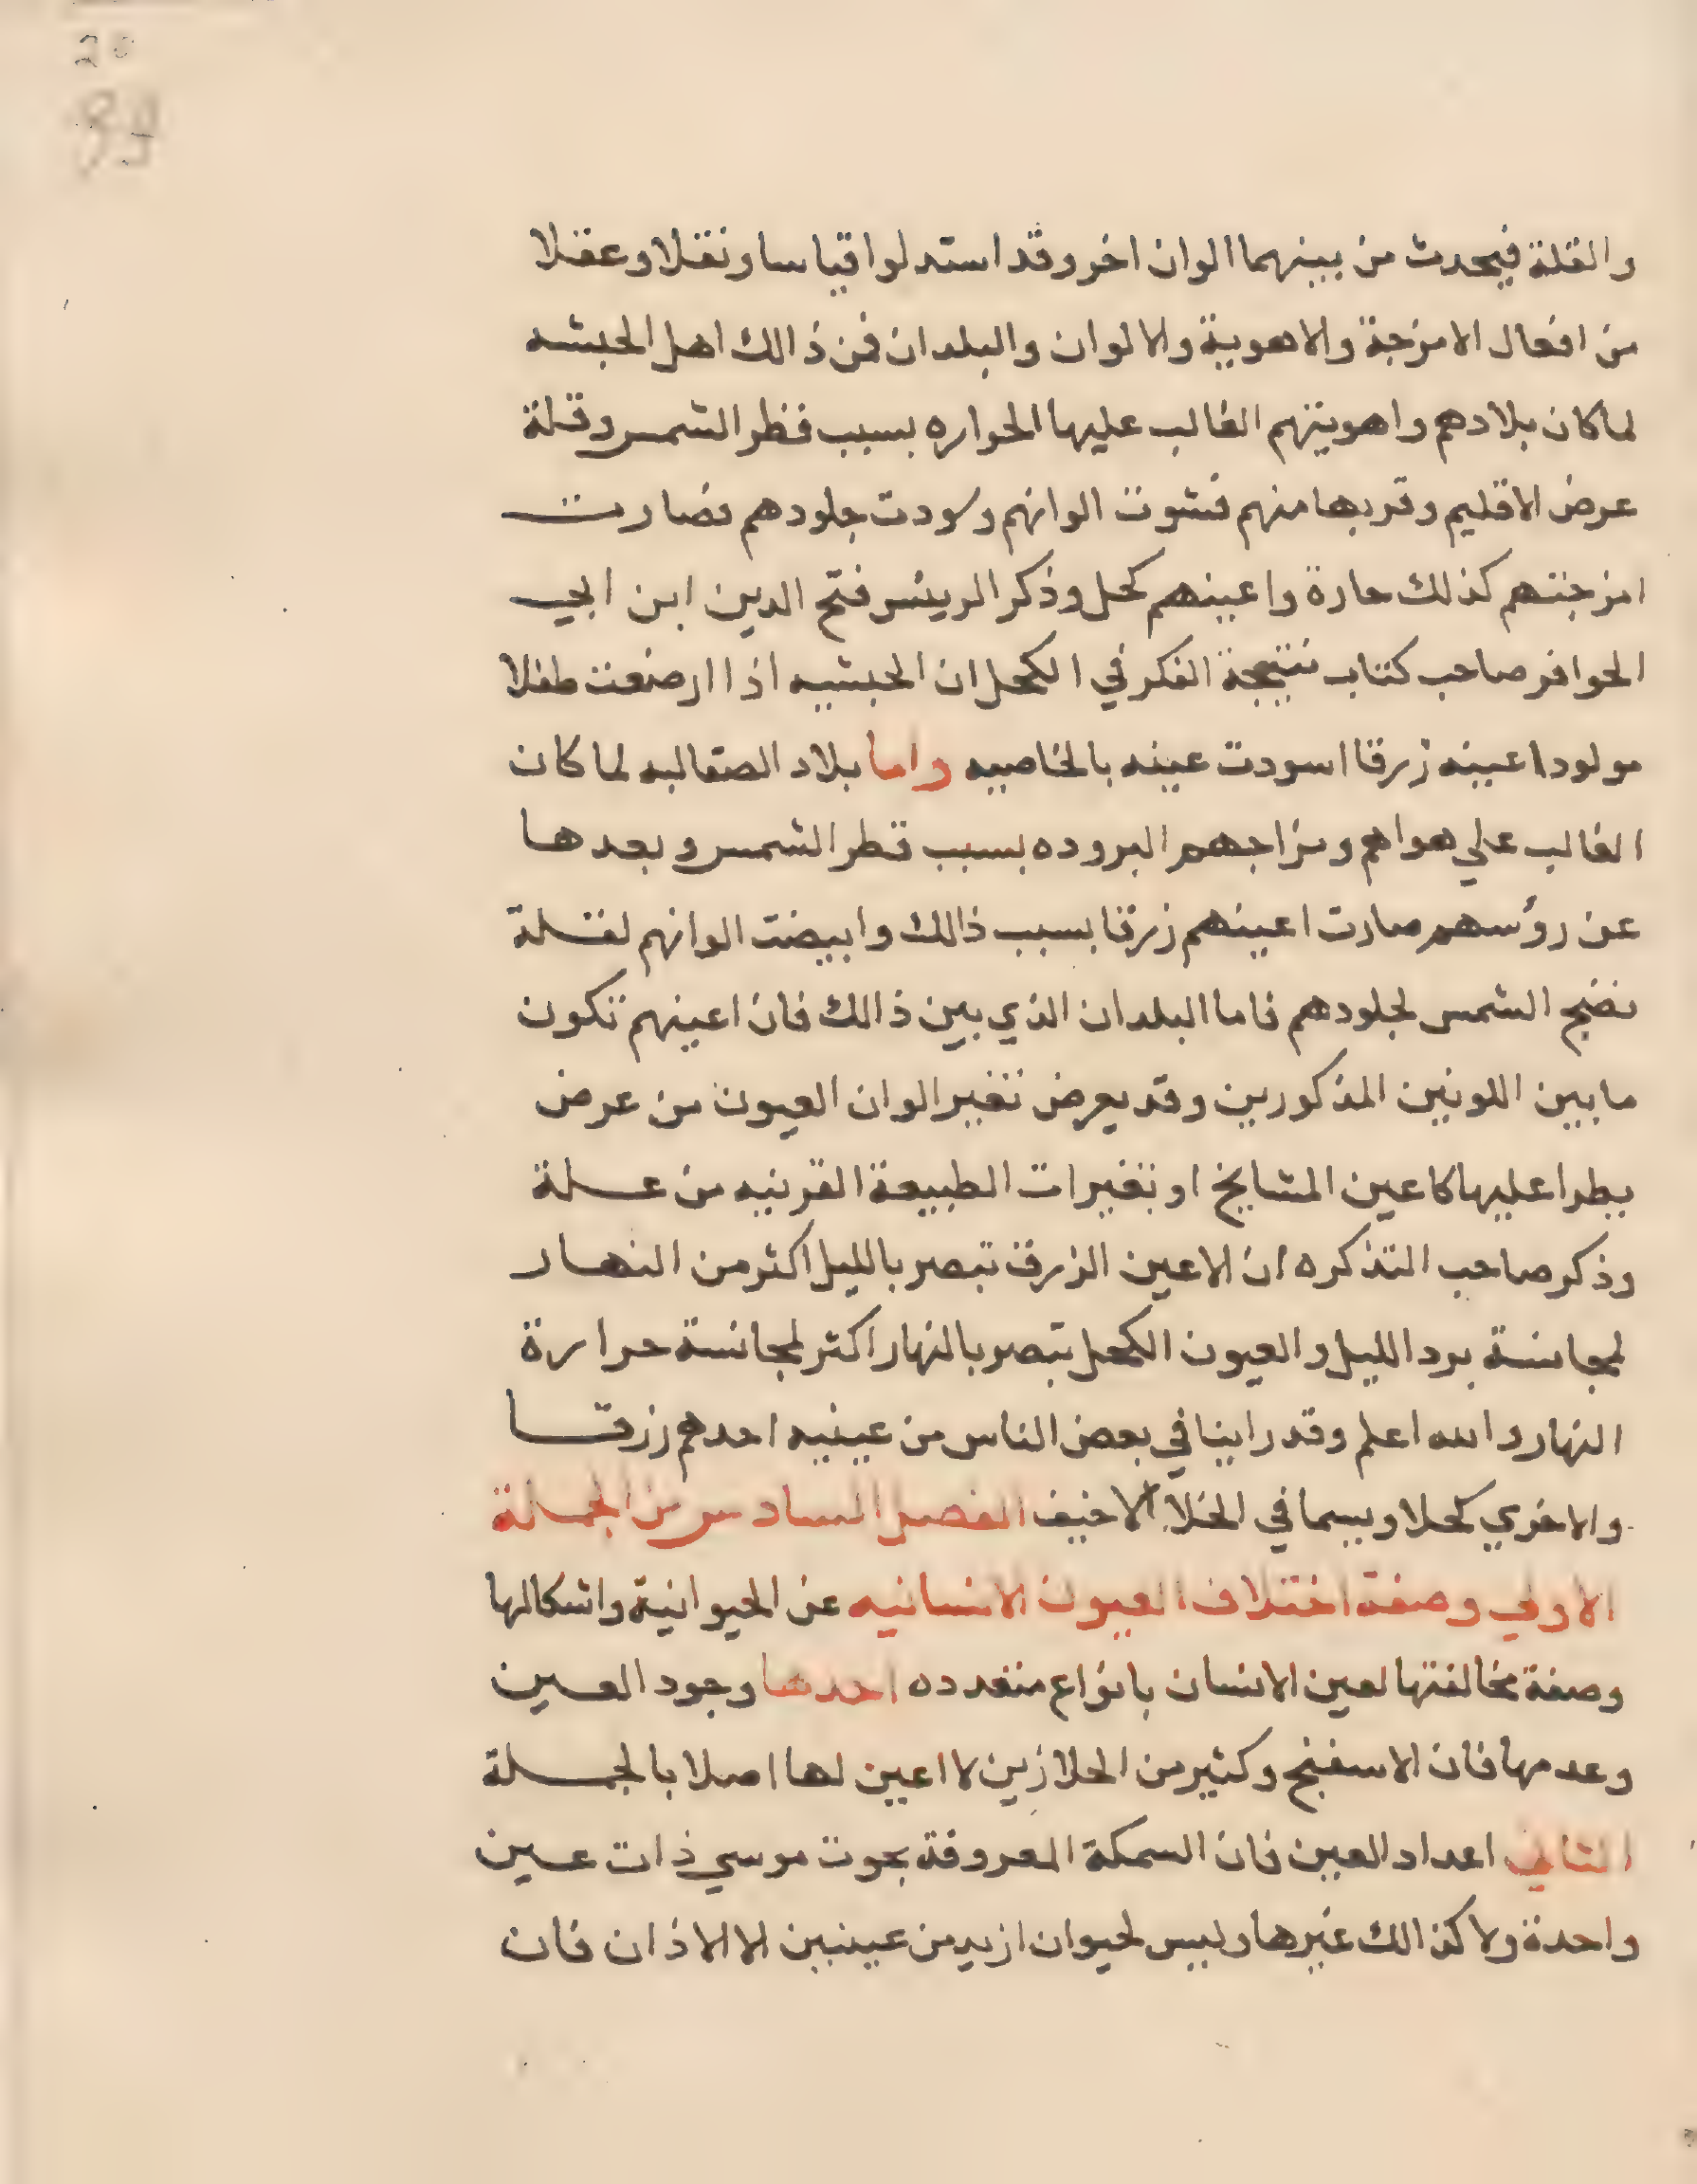 20
والقلة فيحدث من بينهما الوان اخر وقد استدلوا قياسا ونقلا وعقلا
من افعال الامزجة والاهوية والالوان والبلدان فمن ذالك اهل الحبشه
لما كان بلادهم واهويتهم الغالب عليها الحراره بسبب قطر الشمس وقلة
عرض الاقليم وقربها منهم فشوت الوانهم وسودت جلودهم فصارت
امزجتهم كذلك حارة واعينهم كحل وذكر الريئس فتح الدين ابن ابي
الحوافر صاحب كتاب نتيجة الفكر في الكحل ان الحبشيه اذا ارضعت طفلا
مولودا عينه زرقا اسودت عينه بالخاصيه واما بلاد الصقالبه لما كان
الغالب علي هواهم ومزاجهم البروده بسبب قطر الشمس وبعدها
عن رؤسهم صارت اعينهم زرقا بسبب ذالك وابيضت الوانهم لقلة
نضج الشمس لجلودهم فاما البلدان الذي بين ذالك فان اعينهم تكون
ما بين اللونين المذكورين وقد يعرض تغير الوان العيون من عرض
يطرا عليها كاعين المشايخ او بتغيرات الطبيعة القرنيه من علة
وذكر صاحب التذكره ان الاعين الزرق تبصر بالليل اكثر من النهار
لمجانسة برد الليل والعيون الكحل تبصر بالنهار اكثر لمجانسة حرارة
النهار والله اعلم وقد راينا في بعض الناس من عينيه احدهم زرقا
والاخري كحلا ويسما في الخلا الاخيف الفصل السادس من الجملة
الاولي وصفة اختلاف العيون الانسانيه عن الحيوانية واشكالها
وصفة مخالفتها لعين الانسان بانواع متعدده احدها وجود العين
وعدمها فان الاسفنج وكثير من الحلازين لا اعين لها اصلا بالجملة
الثاني اعداد العين فان السمكة المعروفة بحوت موسي ذات عين
واحدة ولا كذالك غيرها وليس لحيوان ازيد من عينين الا الاذان فان